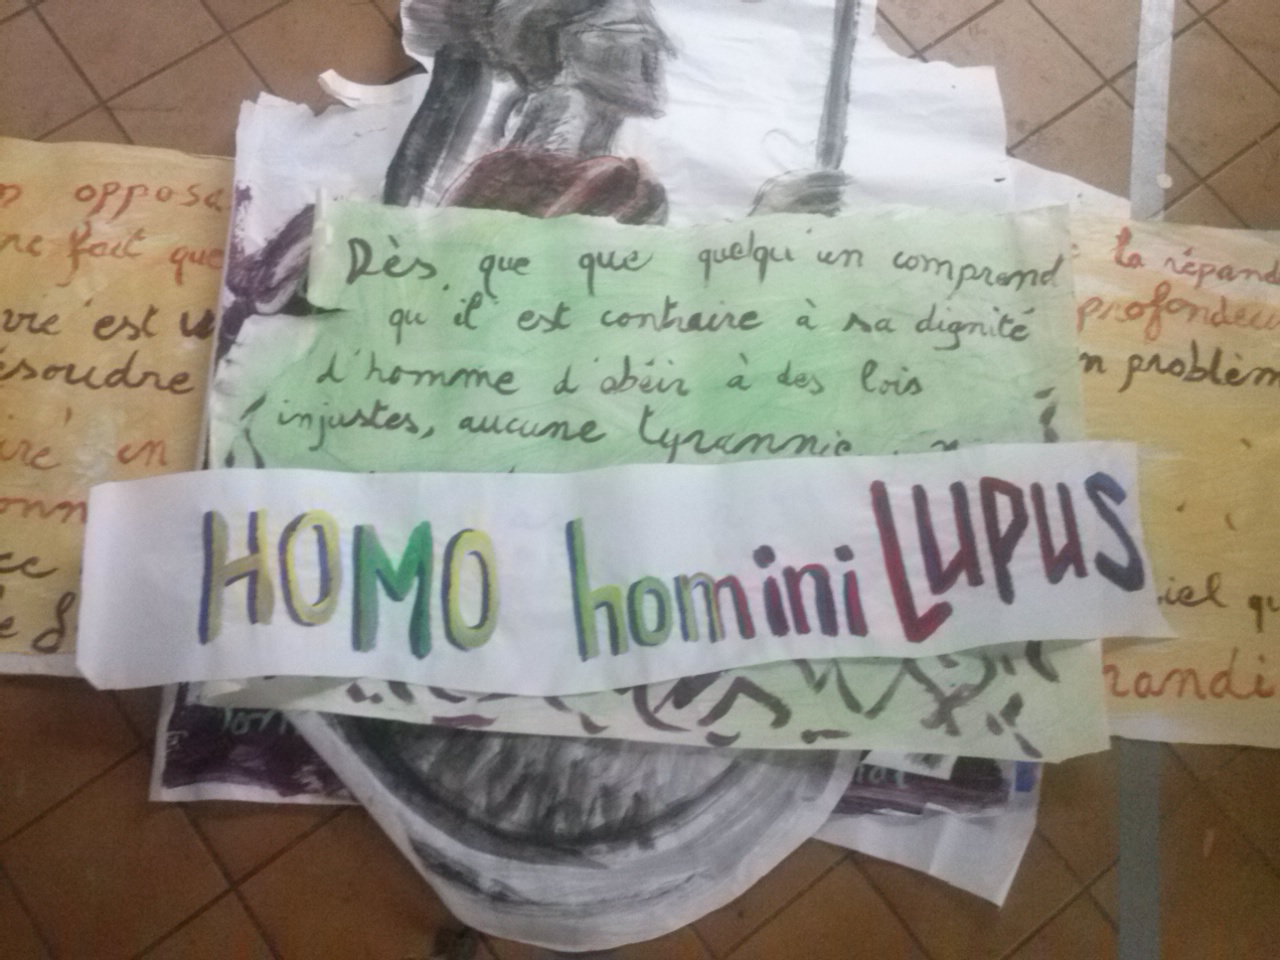 opposa
ne fait que
vie est
soudre
en
Dès que que quelqu'un comprend
qu'il est contraire à sa dignité
d'homme d'obéir à des lois
injustes, aucune tyrannie
HOMO homini LUPUS
la répand
profondeu
n problèm
iel qu
randi